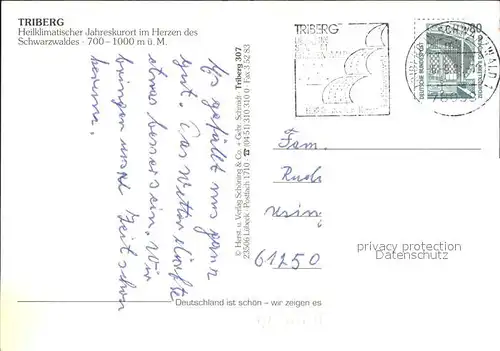 TRIBERG
Heilklimatischer Jahreskurort im Herzen des
Schwarzwaldes - 700 - 1000 m ü. M.
Es gefällt uns ganz
gut. Das Wetter dürfte
etwas besser sein. Wir
bringen unsre Zeit schon
herum.
© Herst. u. Verlag Schöning & Co. + Gebr. Schmidt Triberg 307
23506 Lübeck · Postfach 1710 · ☎ (04 51) 310 310 0 · Fax 3 52 83
TRIBERG
SCHWARZWALD 1
DEUTSCHE BUNDESPOST
Fam.
Rud
61250
privacy protection
Datenschutz
Deutschland ist schön – wir zeigen es